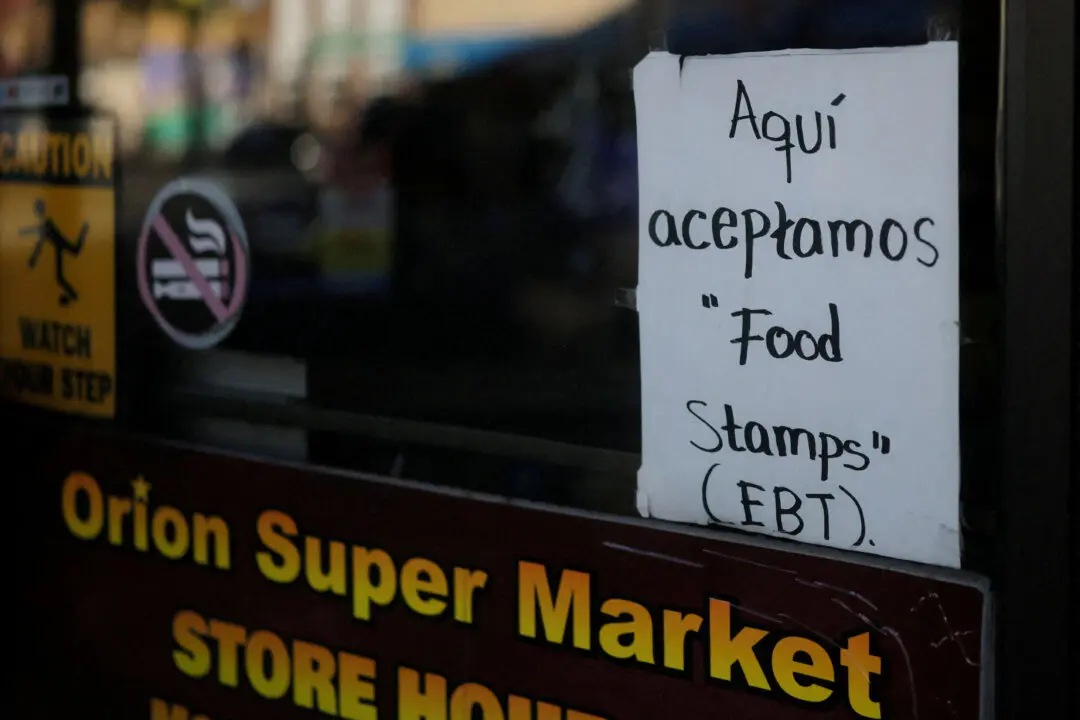 CAUTION
WATCH
YOUR STEP
Aquí
aceptamos
"Food
Stamps"
(EBT).
Orion Super Market
STORE